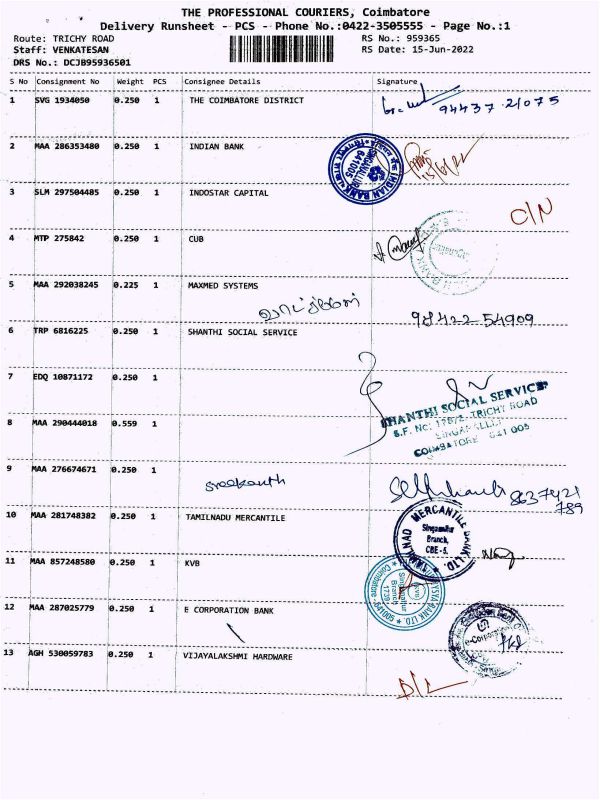 THE PROFESSIONAL COURIERS, Coimbatore
Delivery Runsheet - PCS - Phone No.:0422-3505555 - Page No.:1
Route: TRICHY ROAD RS No.: 959365
Staff: VENKATESAN RS Date: 15-Jun-2022
DRS No.: DCJB95936501
S No Consignment No Weight PCS Consignee Details Signature
1 SVG 1934050 0.250 1 THE COIMBATORE DISTRICT
94437 21075
2 MAA 286353480 0.250 1 INDIAN BANK
15/6/22
INDIAN BANK
SINGANALLUR
641005
3 SLM 297504485 0.250 1 INDOSTAR CAPITAL
C/N
4 MTP 275842 0.250 1 CUB
5 MAA 292038245 0.225 1 MAXMED SYSTEMS
98422 54909
6 TRP 6816225 0.250 1 SHANTHI SOCIAL SERVICE
7 EDQ 10871172 0.250 1
SHANTHI SOCIAL SERVICE
TRICHY ROAD
COIMBATORE 641 005
8 MAA 290444018 0.559 1
9 MAA 276674671 0.250 1
sreekanth
8637421
789
10 MAA 281748382 0.250 1 TAMILNADU MERCANTILE
TAMILNAD MERCANTILE BANK LTD.
Singanallur
Branch,
CBE - 5.
11 MAA 857248580 0.250 1 KVB
Singanallur
Branch
1739
12 MAA 287025779 0.250 1 E CORPORATION BANK
13 AGH 530059783 0.250 1 VIJAYALAKSHMI HARDWARE
D/L